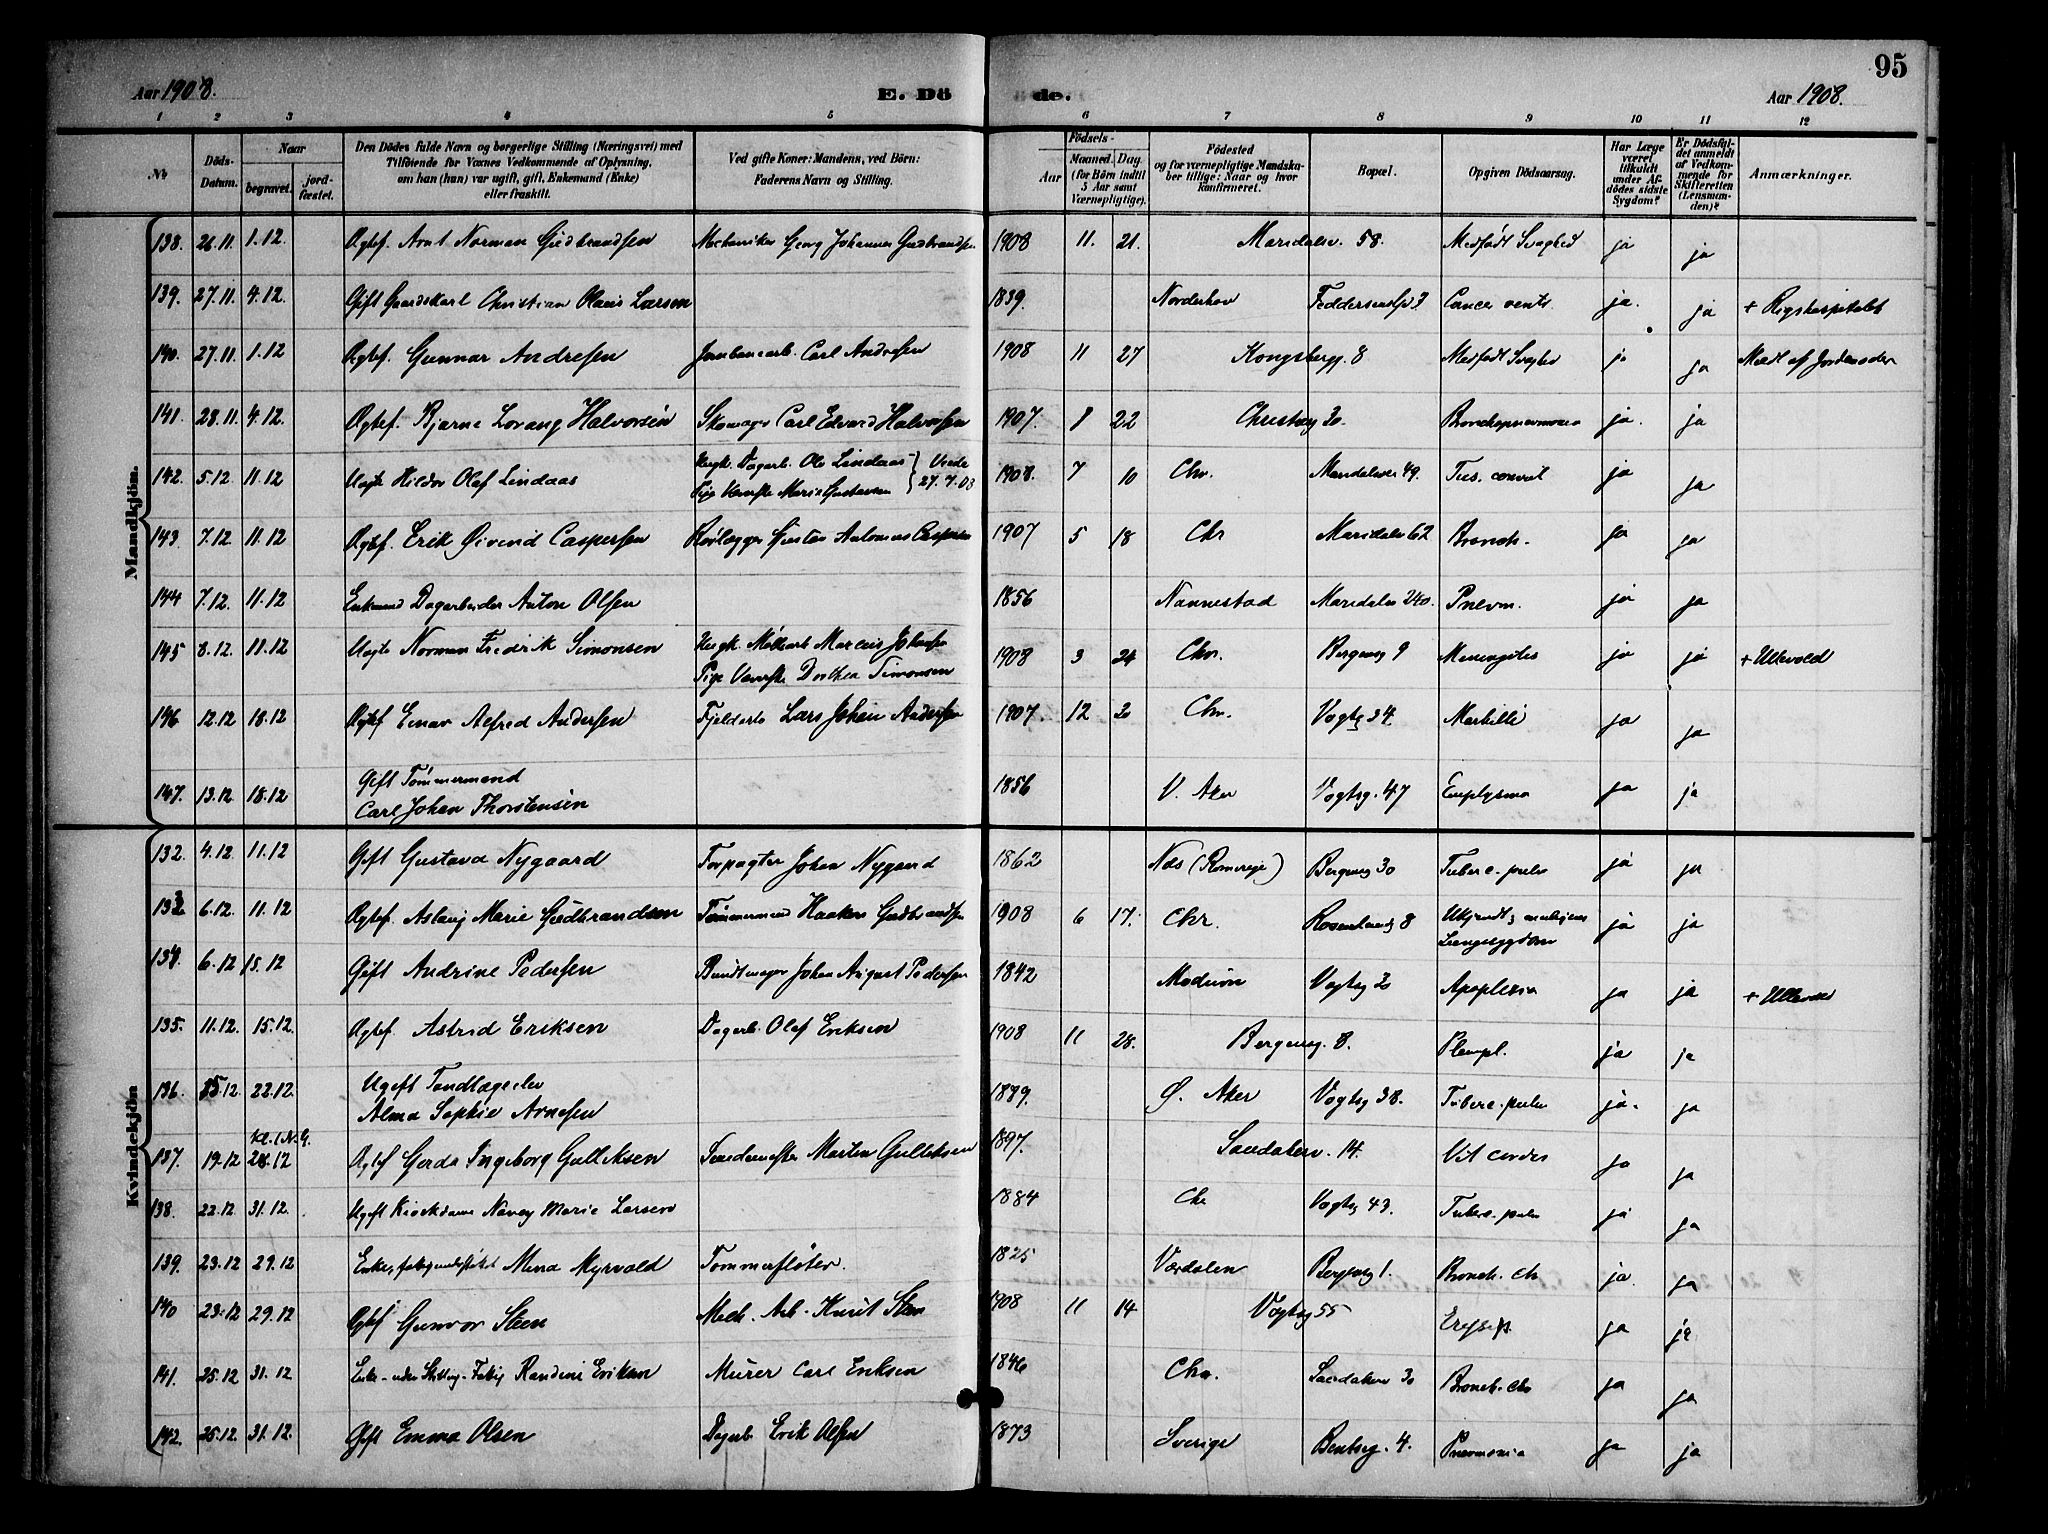 95
Aar 1908.
E. Dö
de.
Aar 1908.
1 2 3 4 5 6 7 8 9 10 11 12
No
Döds-Datum.
Naar
begravet.
jord-fæstet.
Den Dödes fulde Navn og borgerlige Stilling (Næringsvei) med
Tilföiende for Voxnes Vedkommende af Oplysning,
om han (hun) var ugift, gift, Enkemand (Enke)
eller fraskilt.
Ved gifte Koner: Mandens, ved Börn:
Faderens Navn og Stilling.
Födsels-
Aar
Maaned. Dag.
(for Börn indtil
5 Aar samt
Værnepligtige).
Födested
og for værnepligtige Mandska-
ber tillige: Naar og hvor
konfirmeret.
Bopæl.
Opgiven Dödsaarsag.
Har Læge
været
tilkaldt
under Af-
dödes sidste
Sygdom?
Er Dödsfal-
det anmeldt
af Vedkom-
mende for
Skifteretten
(Lensman-
den)?
Anmærkninger.
Mandkjön.
138. 26.11. 1.12. Ægtef. Arnt Norman Gudbrandsen Mechaniker Georg Johannes Gudbrandsen 1908 11. 21. Maridalsv. 58. Medfødt Svaghed ja ja
139. 27.11. 4.12. Gift Gaardskarl Christian Olaus Larsen 1839. Norderhov Feddersensg. 3 Cancer ventr. ja. ja + Rigshospitalet
140. 27.11. 1.12 Ægtef. Gunnar Andresen Jernbanearb. Carl Andresen 1908 11 27 Kongsbergg. 8 Medfødt Svaghed ja ja Meldt af Jordemoder
141. 28.11. 4.12. Ægtef. Bjarne Lorang Halvorsen Skomager Carl Edvard Halvorsen 1907. 8 22 30. Bronchopneumonia ja. ja
142. 5.12. 11.12 Uægte Hildor Olaf Lindaas Ungk. Dagarb. Ole Lindaas
Pige Marie Gustavsen 27.7.08 1908. 7 10 Chr. Maridalsv. 49. ja ja
143. 7.12. 11.12 Ægtef. Erik Øivind Caspersen Rørlægger Gustav Antonius Caspersen 1907 5 18 Chr Maridalsv 62 Bronch. ja ja
144 7.12. 11.12 Enkemand Dagarbeider Anton Olsen 1856 Nannestad Maridalsv 240. Pnevm. ja ja
145 8.12. 11.12 Uægte Norman Fredrik Simonsen Ungk. Marcus Johansen
Pige Dorthea Simonsen 1908 3 24 Chr. Bergensg 9 Meningitis ja ja + Ullevold
146 12.12 18.12 Ægtef Einar Alfred Andersen Lars Johan Andersen 1907. 12 Chr. Vogtsg 34. Morbilli ja ja
147. 13.12 18.12 Gift Tømmermand
Carl Johan Thorstensen 1856 V. Aker Vogtsg. 47 Emphysema ja ja
Kvindekjön
132. 4.12. 11.12 Gift Gustava Nygaard Forpagter Johan Nygaard 1862 Næs (Romerige) Bergensg 30 Tuberc. pulm ja ja
133 6.12. 11.12 Ægtef. Aslaug Marie Gudbrandsen Tømmermand Haakon Gudbrandsen 1908 6 17. Chr. 8 Ukjendt, muligens
Lungesygdom ja ja
134. 6.12 15.12 Gift Andrine Pedersen Bundtmager Johan August Pedersen 1842 Modum Vogtsg Apoplexia ja ja + Ullevold
135. 11.12. 15.12. Ægtef. Astrid Eriksen Dagarb. Olaf Eriksen 1908 11 28. Bergensg. 8. ja ja
136. 15.12 22.12. Ugift Tandlægeelev
Alma Sophie Arnesen 1879. Ø. Aker Vogtsg 38. Tuberc. pulm ja. ja
137. 19.12 28.12 Ægtef Gerda Ingeborg Gulliksen Martin Gulliksen 1897. Sandakerv. 14. Vit cordis ja ja
138. 22.12 31.12. Ugift Kioskdame Nancy Marie Larsen 1884 Chr Vogtsg 43. Tuberc. pulm ja ja
139. 23.12 29.12 Enke, fattigunderstøttet Mina Myrvold Tømmerfløter. 1825 Værdalen Bergensg 1. Bronch. chr ja. ja
140 23.12 29.12 Ægtef Gunvor Steen Mech. Arb. Knut Steen 1908 11 14 Vogtsg 55 Erysip. ja ja
141. 25.12 31.12 Enke Randine Eriksen Murer Carl Eriksen 1846 Chr. Sandakerv Bronch. chr ja ja
142. 25.12. 31.12. Gift Emma Olsen Dagarb Erik Olsen 1873 Sverige Bentseg. 4. Pnevmonia ja ja